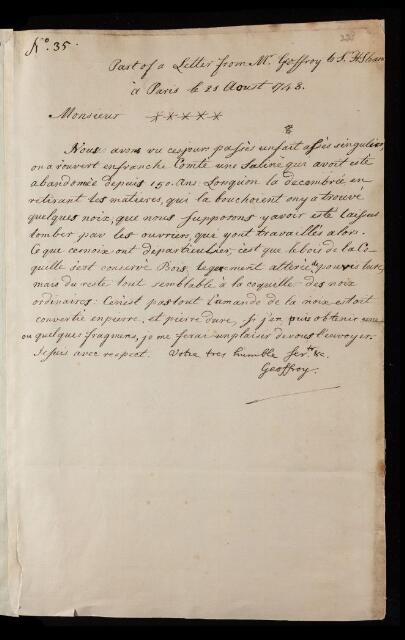 N.o 35.
Part of a Letter from M.r Geoffroy to S.r H Sloan
à Paris le 21 Aoust 1743.
Monsieur × × × × ×
Nous avons vu ces jours passés un fait assés singulier,
on a rouvert en franche Comté une Saline qui avoit eté
abandonnée depuis 150. ans. Lorsqu'on la decombrée en
retirant les matieres, qui la bouchoient on y a trouvé
quelques noix, que nous supposons y avoir eté laissés
tomber par les ouvriers, qui y ont travaillés alors.
Ce que ces noix ont de particulier, c'est que le bois de la Co-
quille s'est conservé Bois, legerement alteré de pourriture,
mais du reste tout semblable à la coquille des noix
ordinaires. Ce n'est pas tout l'amande de la noix estoit
convertie en pierre, et pierre dure, Si j'en puis obtenir une
ou quelques fragmens, je me ferai un plaisir de vous l'envoyer.
Je suis avec respect. Votre tres humble Ser.tr &c.
Geoffroy.